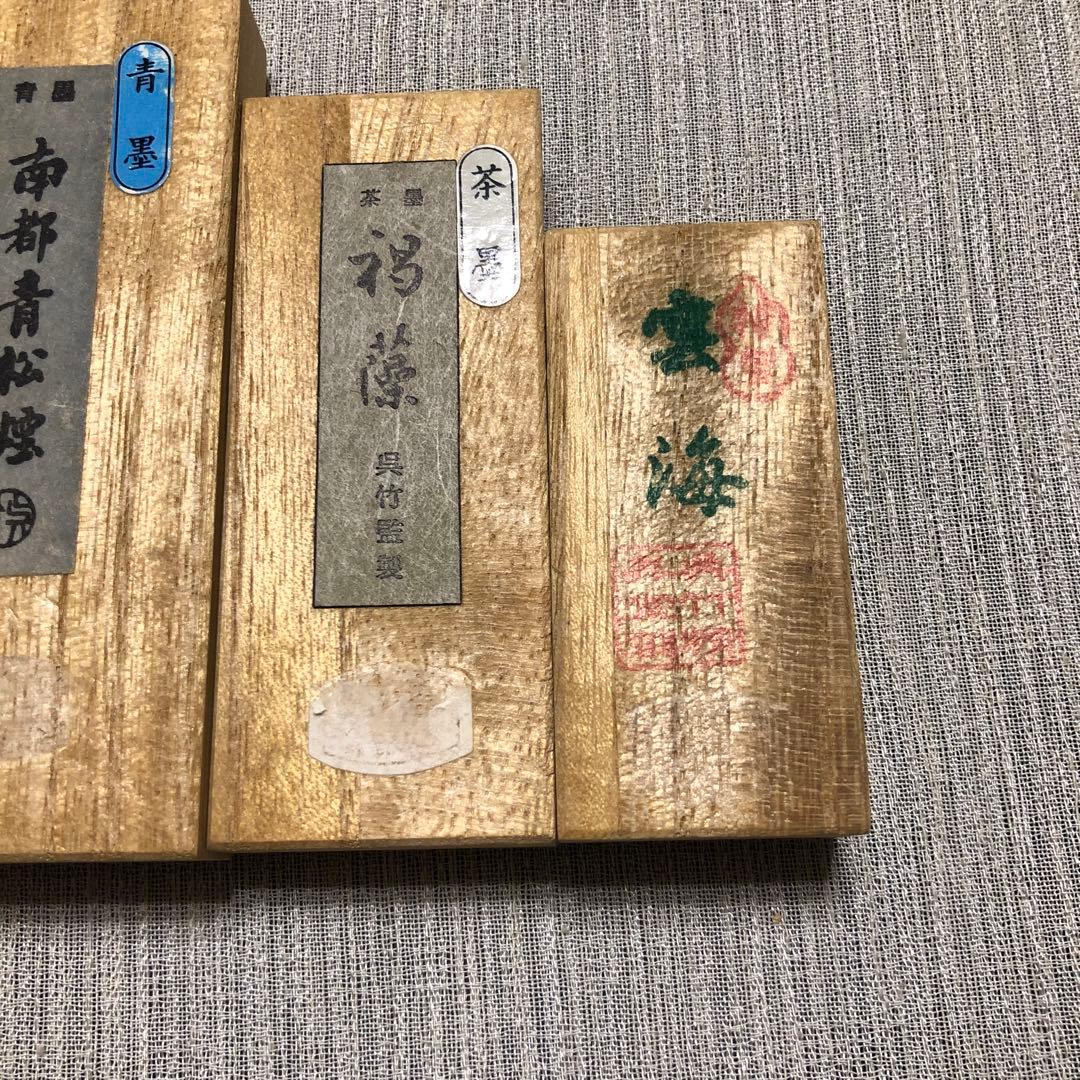 青墨
青墨
南都青松煙
茶墨
茶墨
褐藻
呉竹監製
雲海